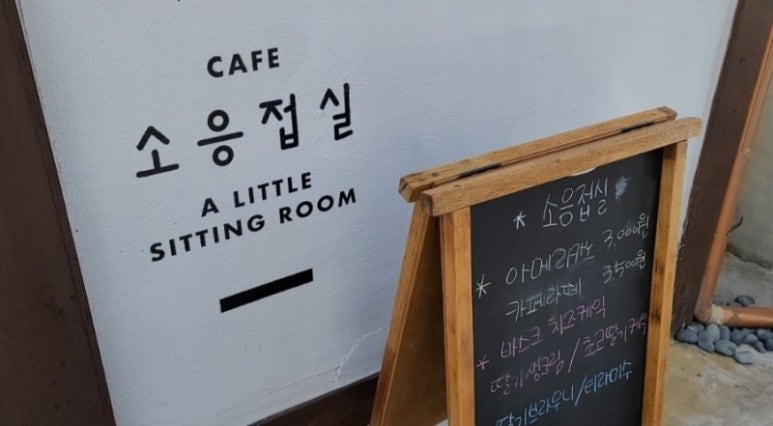 CAFE
소응접실
A LITTLE
SITTING ROOM
* 소응접실 *
* 아메리카노 3,000원
카페라떼 3,500원
* 바스크 치즈케익
딸기생크림/초코딸기케익
딸기브라우니/티라미수